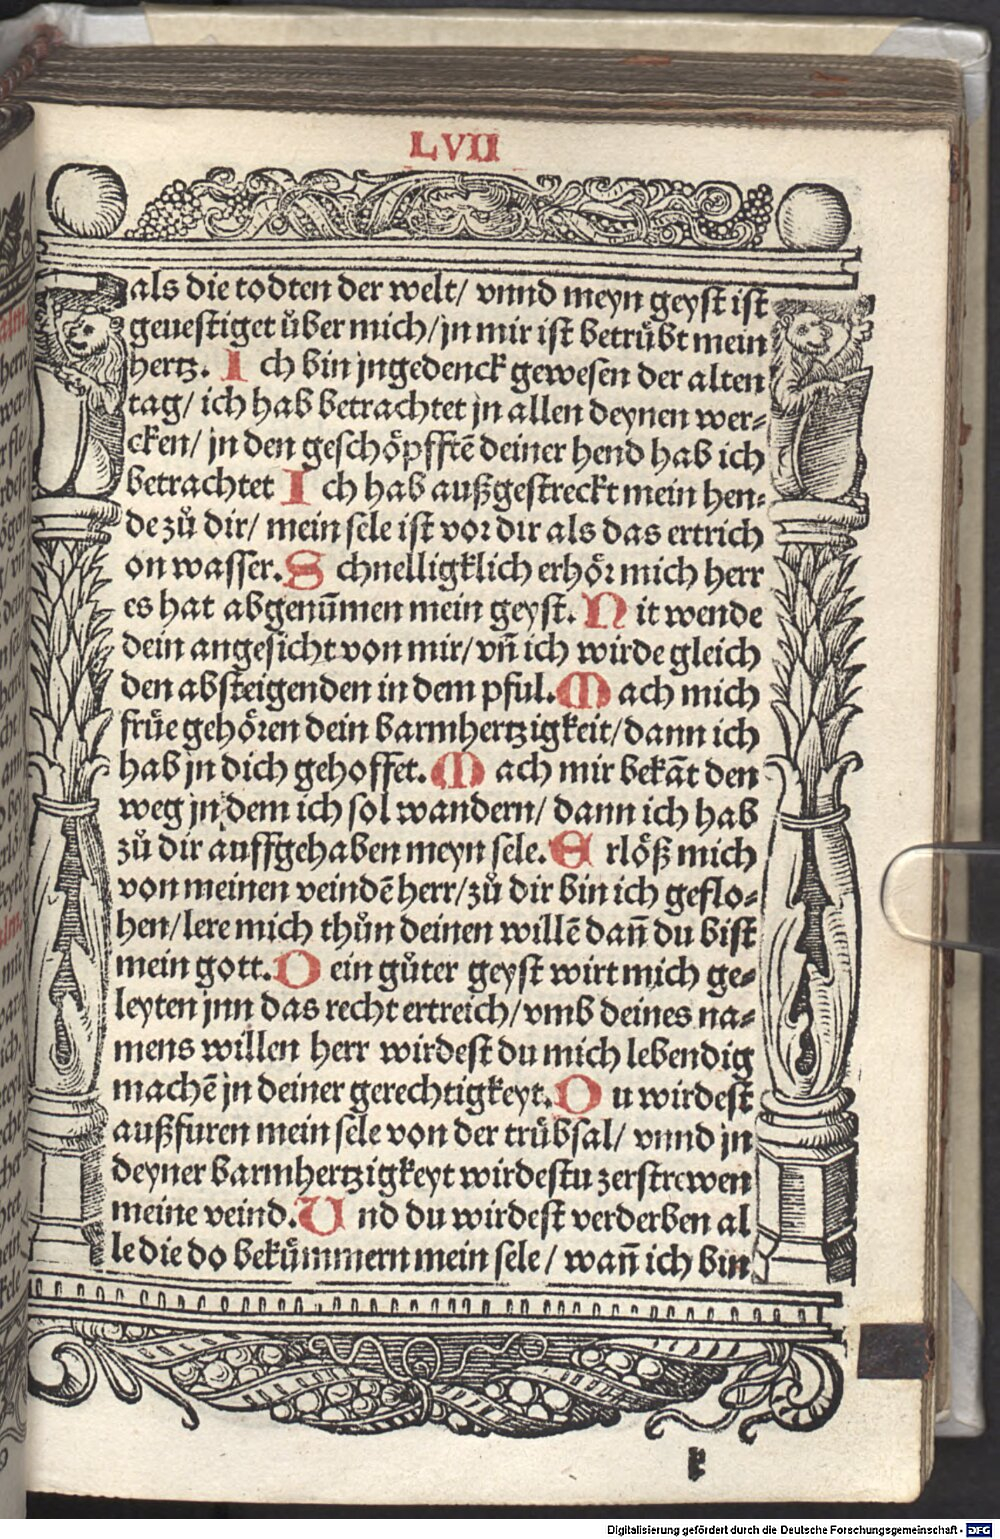 LVII
als die todten der welt/ vnnd meyn geyst ist
geuestiget uͤber mich/ jn mir ist betruͤbt mein
hertz. Ich bin jngedenck gewesen der alten
tag/ ich hab betrachtet jn allen deynen wer-
cken/ jn den geschoͤpfftē deiner hend hab ich
betrachtet Ich hab außgestreckt mein hen-
de zuͦ dir/ mein sele ist vor dir als das ertrich
on wasser. Schnelligklich erhoͤr mich herr
es hat abgenūmen mein geyst. Nit wende
dein angesicht von mir/ vn̄ ich wirde gleich
den absteigenden in dem pful. Mach mich
fruͤe gehoͤren dein barmhertzigkeit/ dann ich
hab jn dich gehoffet. Mach mir bekāt den
weg jn dem ich sol wandern/ dann ich hab
zuͦ dir auffgehaben meyn sele. Erloͤß mich
von meinen veindē herr/ zuͦ dir bin ich geflo-
hen/ lere mich thuͦn deinen willē dan̄ du bist
mein gott. Dein guͦter geyst wirt mich ge-
leyten jnn das recht ertreich/ vmb deines na-
mens willen herr wirdest du mich lebendig
machē jn deiner gerechtigkeyt. Du wirdest
außfuren mein sele von der truͤbsal/ vnnd jn
deyner barmhertzigkeyt wirdestu zerstrewen
meine veind. Und du wirdest verderben al
le die do bekuͤmmern mein sele/ wan̄ ich bin
Digitalisierung gefördert durch die Deutsche Forschungsgemeinschaft - DFG